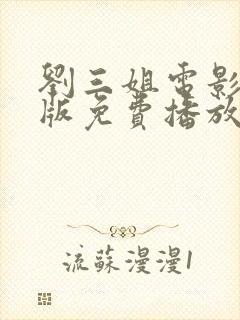 劉三姐電影
版免費播放
流蘇漫漫1